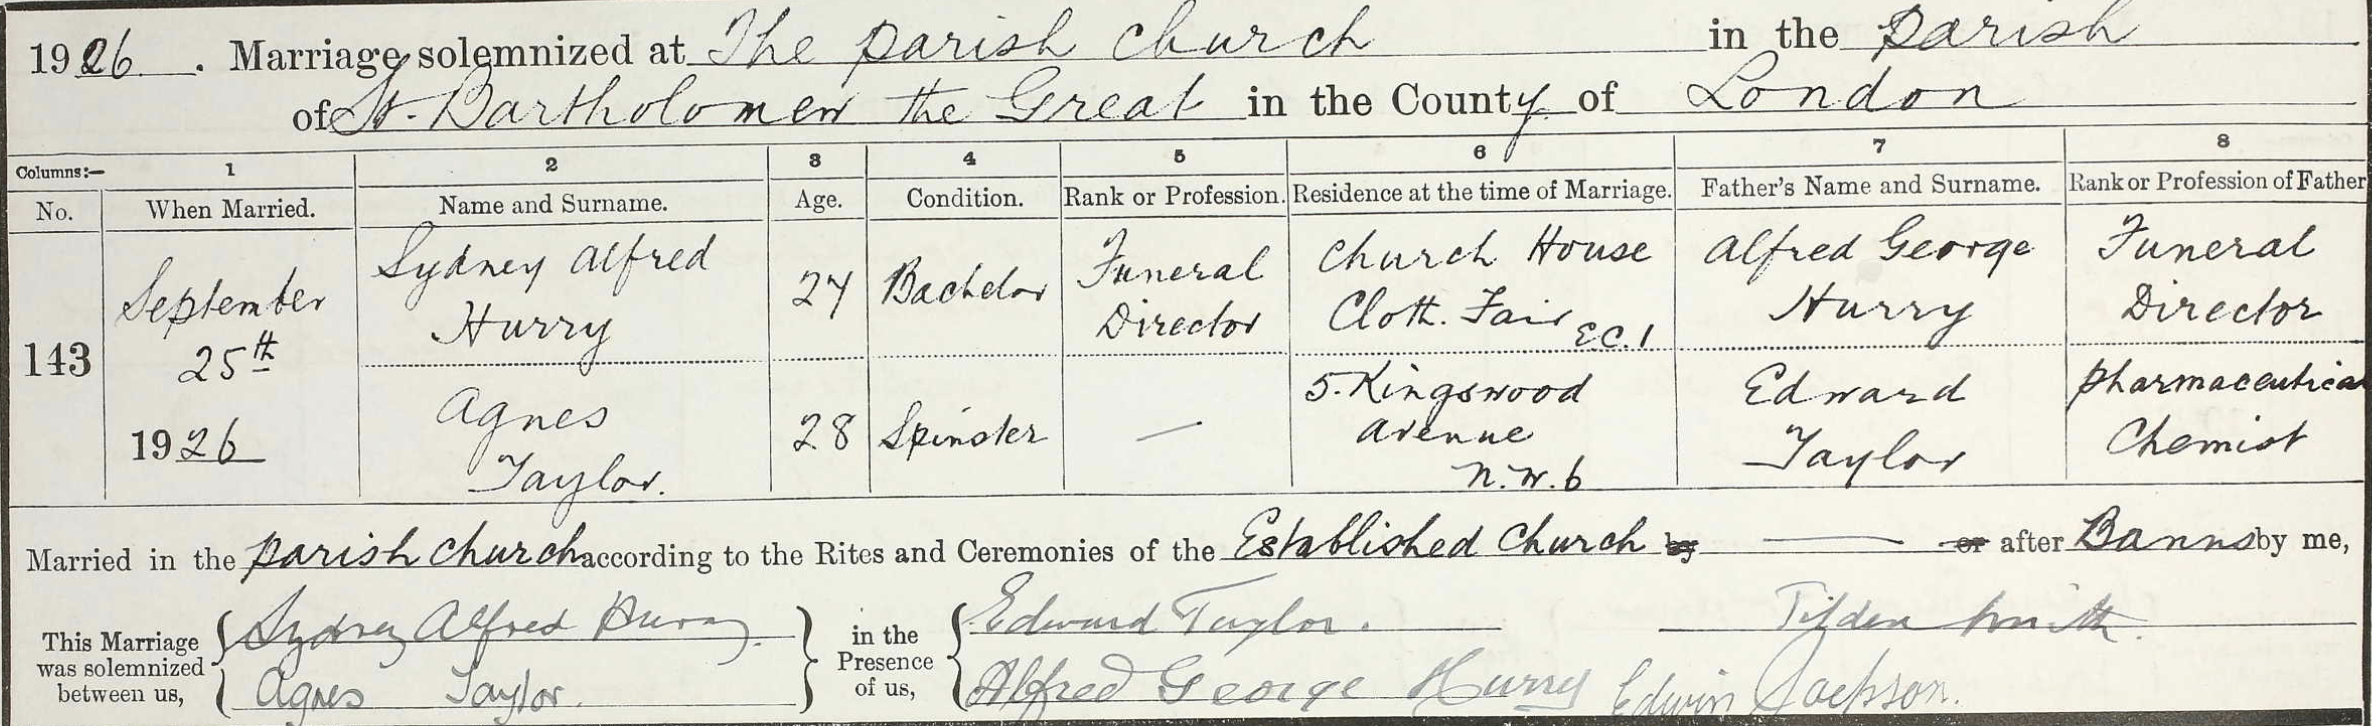 1926. Marriage solemnized at The parish church in the parish
of St. Bartholomew the Great in the County of London
Columns:— 1 2 3 4 5 6 7 8
No. When Married. Name and Surname. Age. Condition. Rank or Profession. Residence at the time of Marriage. Father's Name and Surname. Rank or Profession of Father
143
September
25th
1926
Sydney Alfred
Hurry
27
Bachelor
Funeral
Director
Church House
Cloth. Fair
E.C.1
Alfred George
Hurry
Funeral
Director
Agnes
Taylor.
28
Spinster
—
5. Kingswood
Avenue
N.W.6
Edward
Taylor
Pharmaceutical
Chemist
Married in the parish church according to the Rites and Ceremonies of the Established Church by —— or after Banns by me,
This Marriage
was solemnized
between us,
Sydney Alfred Hurry.
Agnes Taylor.
in the
Presence
of us,
Edward Taylor.
Alfred George Hurry Edwin Jackson.
Tilden Smith.